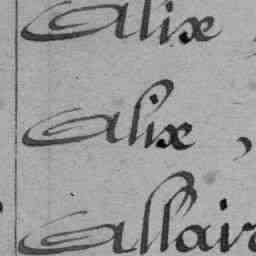 Alix,
Alix,
Allair